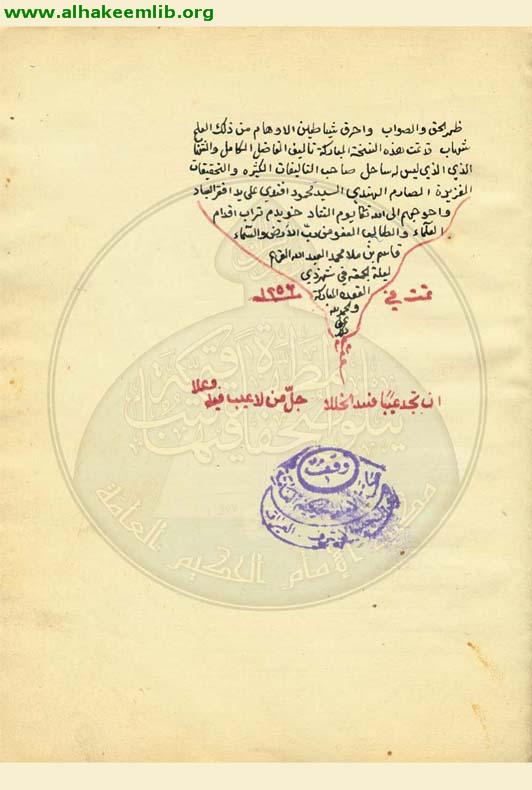 www.alhakeemlib.org
ظهر الحق والصواب واحرق شياطين الاوهام من ذلك العلم
شهاب قد تمت هذه النسخة المباركة تأليف الفاضل الكامل
الذي الذي ليس له ساحل صاحب التاليفات الكثيره والتحقيقات
الغزيرة الصارم الهندي السيد محمود افندي على يد افقر العباد
واحوجهم الى الله تعالى يوم التناد خويدم تراب اقدام
العلماء والطالب العفو من رب الأرض والسماء
قاسم بن ملا محمد العبد الله
ليلة الجمعة في شهر ذي
القعدة المباركة
تمت في ١٢٥٦
ان تجد عيبا فسد الخللا جل من لا عيب فيه وعلا
وقف